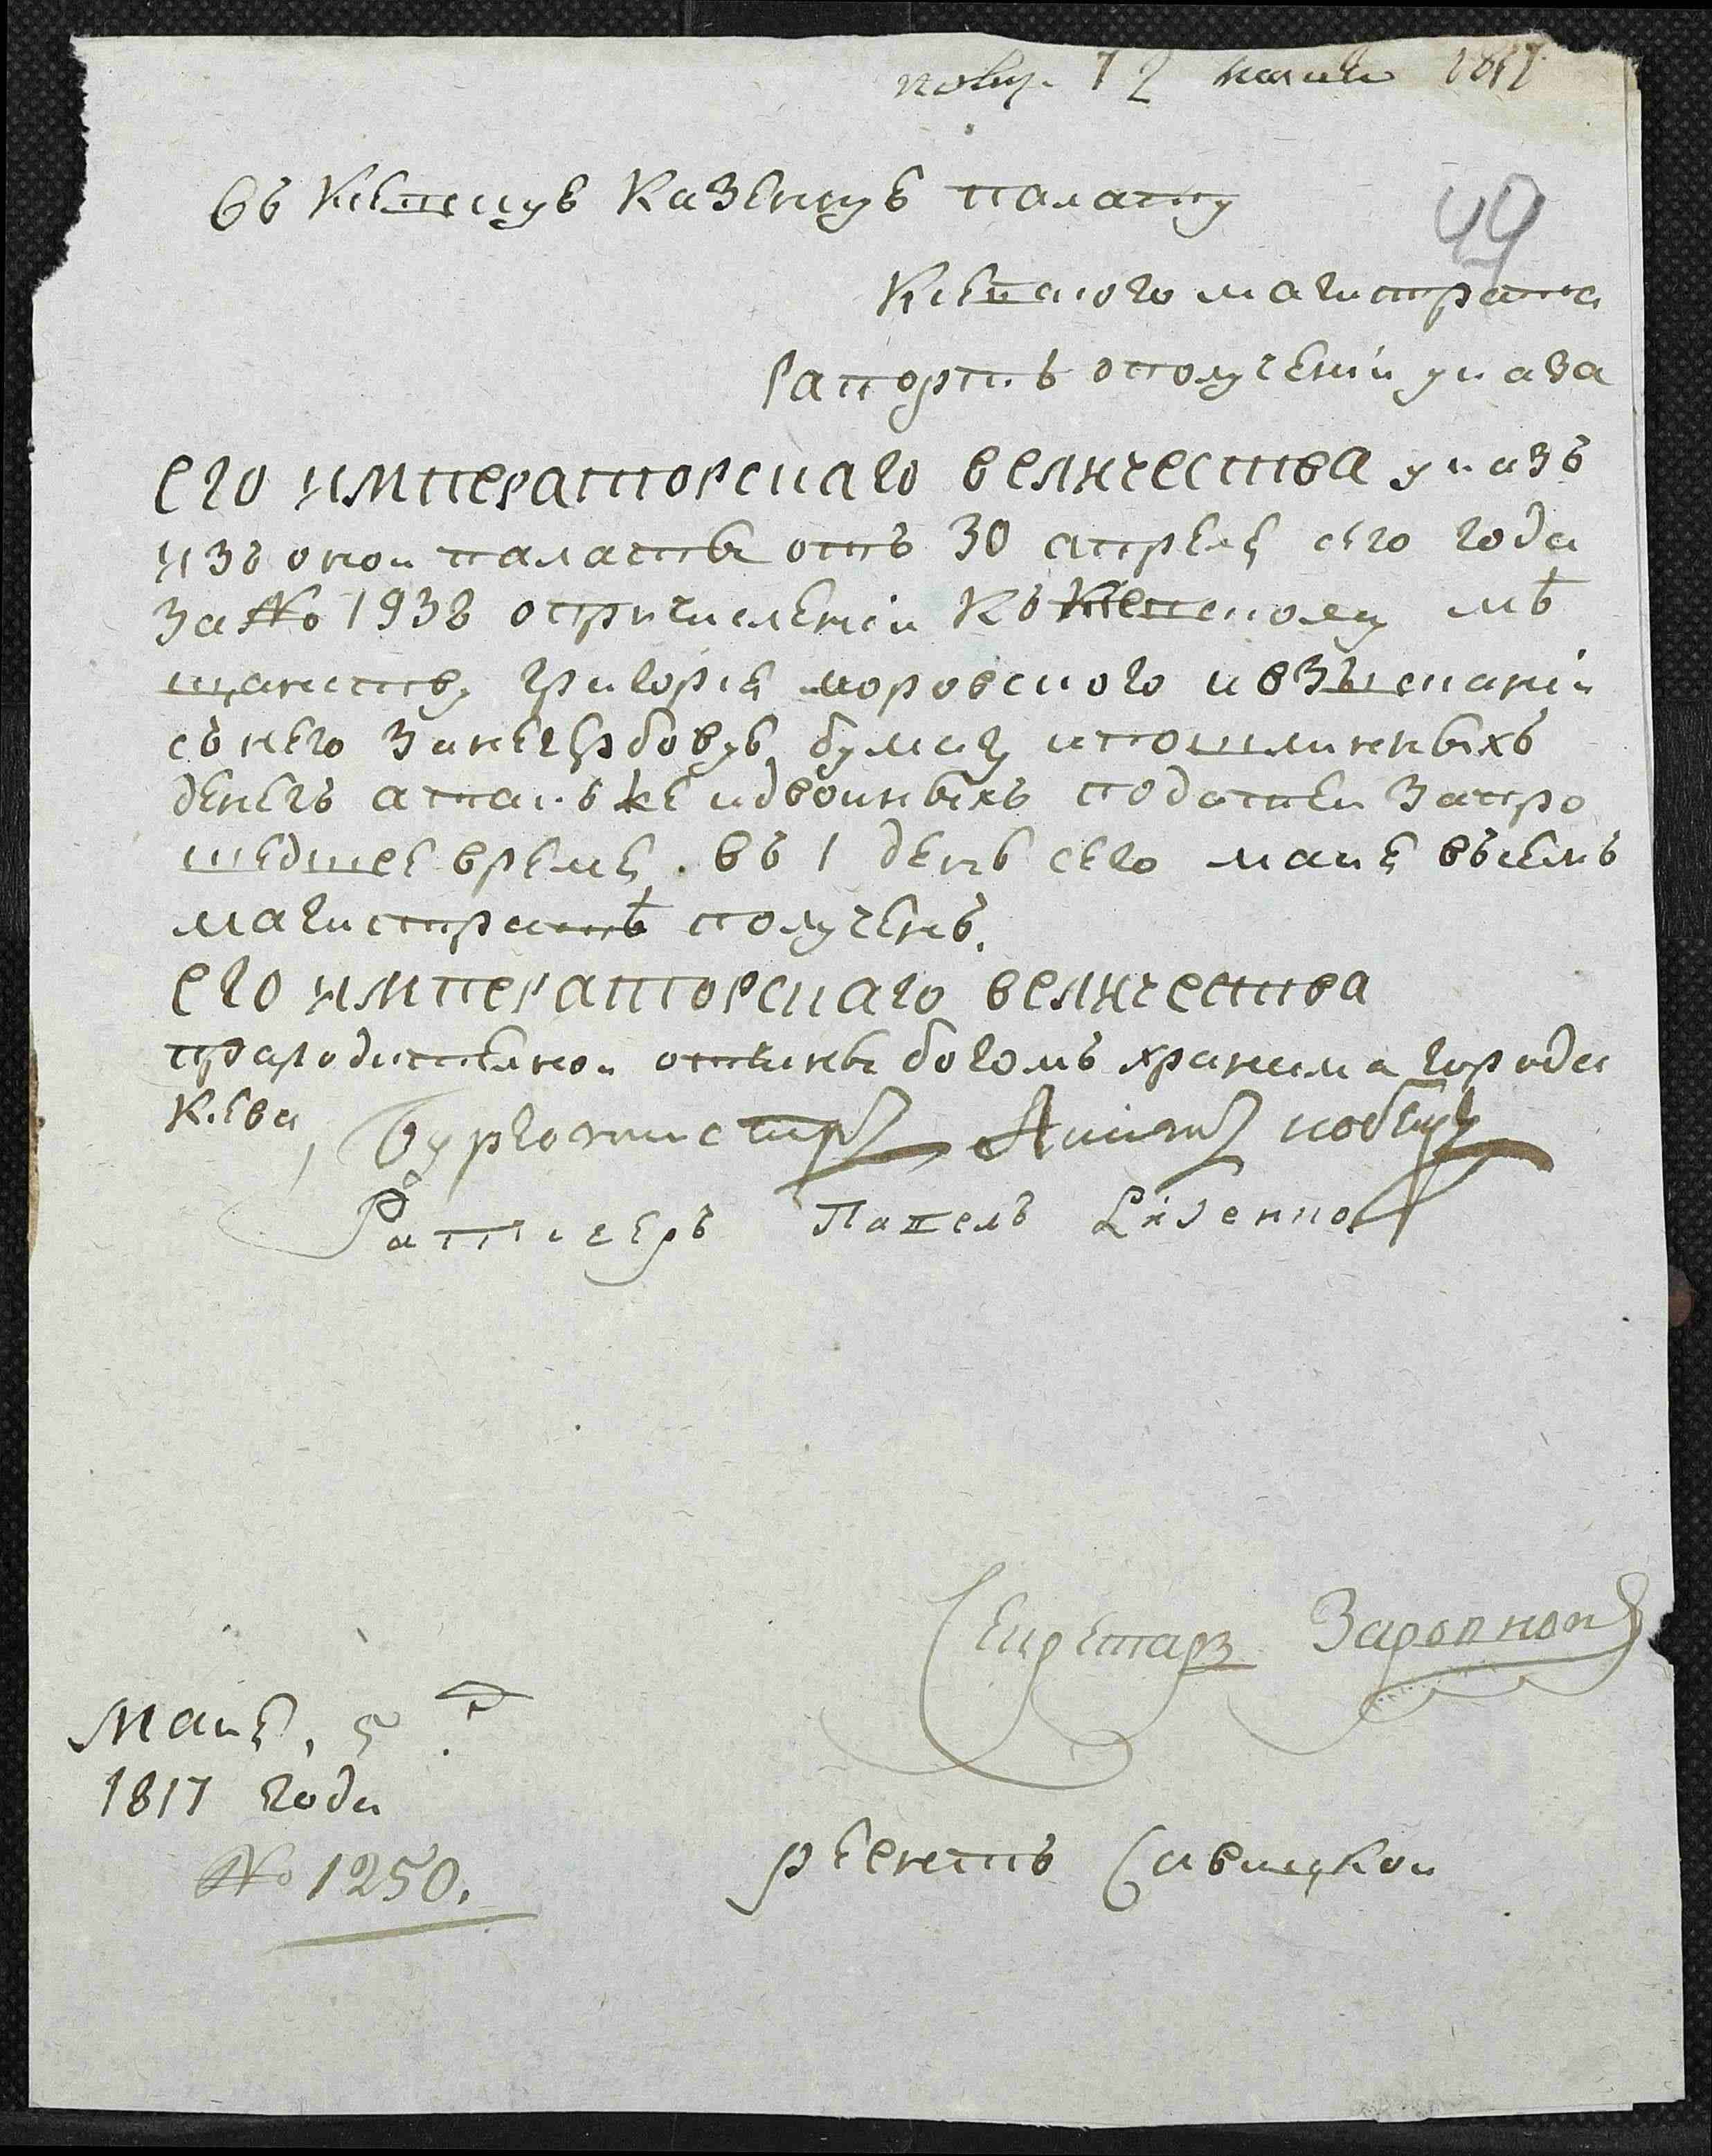 получ. 12 маия 1817
49
Въ Киевскую Казенную палату
Киевского магистрата
Рапортъ ополученіи указа
его императорскаго величества указъ
изъ оной палаты отъ 30 апреля сего года
За № 1938 опричислении Къ Киевскому мѣ
щанству григория моровского ивзысканіи
съ него Занегербовую бумагу ипошлинныхъ
денегъ атакъже идвойныхъ податей Запро
шедшее время. въ 1 день сего маия въсемъ
магистратѣ полученъ.
его императорскаго величества
прародителной отчины богомъ хранима города
Киева,
Бургомистръ
Ратгееръ Павелъ Лизенко
Секретарь
Маия, 5 г
1817 года
№ 1250.
реентъ Савицкой